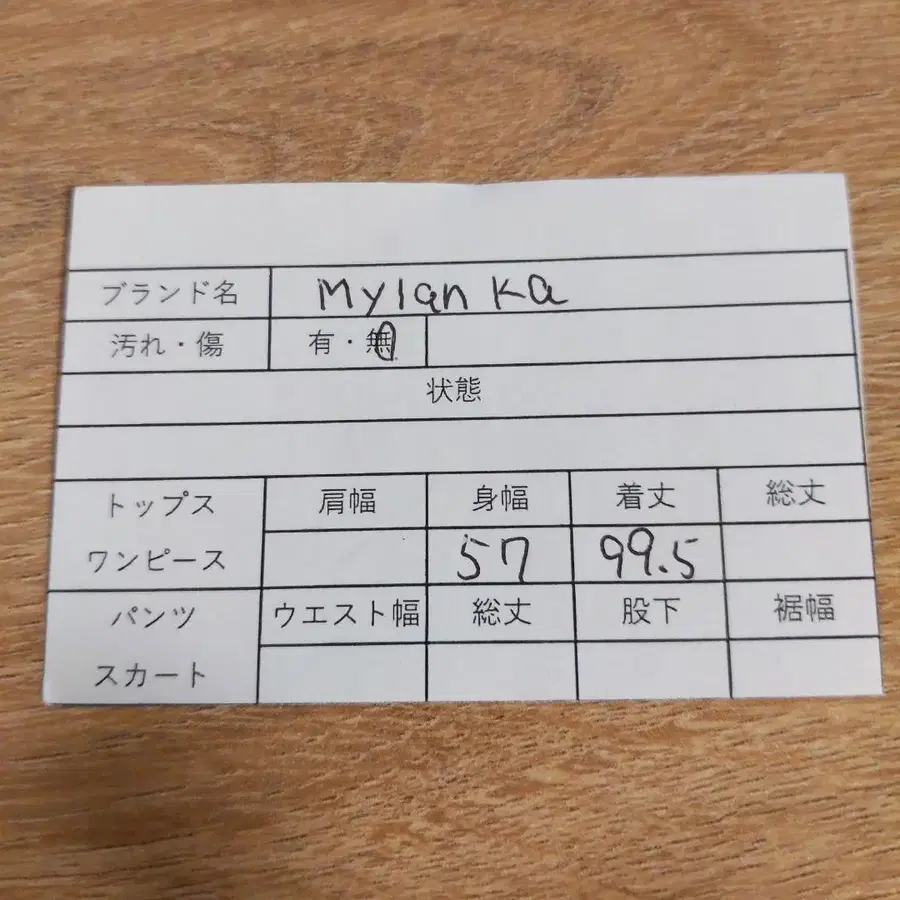 ブランド名 Mylanka
汚れ・傷 有・無
状態
トップス 肩幅 身幅 着丈 総丈
ワンピース 57 99.5
パンツ ウエスト幅 総丈 股下 裾幅
スカート